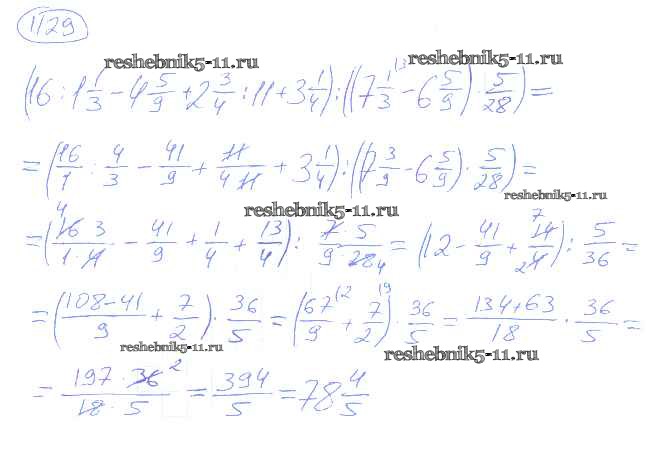 1129
reshebnik5-11.ru reshebnik5-11.ru
(16 : 1 1/3 - 4 5/9 + 2 3/4 : 11 + 3 1/4) : ((7 1/3 - 6 5/9) · 5/28) =
= (16/1 : 4/3 - 41/9 + 11/(4·11) + 3 1/4) : ((7 3/9 - 6 5/9) · 5/28) =
reshebnik5-11.ru
reshebnik5-11.ru
= (16·3/(1·4) - 41/9 + 1/4 + 13/4) : 7·5/(9·28) = (12 - 41/9 + 14/4) : 5/36 =
= ((108-41)/9 + 7/2) · 36/5 = (67/9 + 7/2) · 36/5 = (134+63)/18 · 36/5 =
reshebnik5-11.ru
reshebnik5-11.ru
= 197·36/(18·5) = 394/5 = 78 4/5